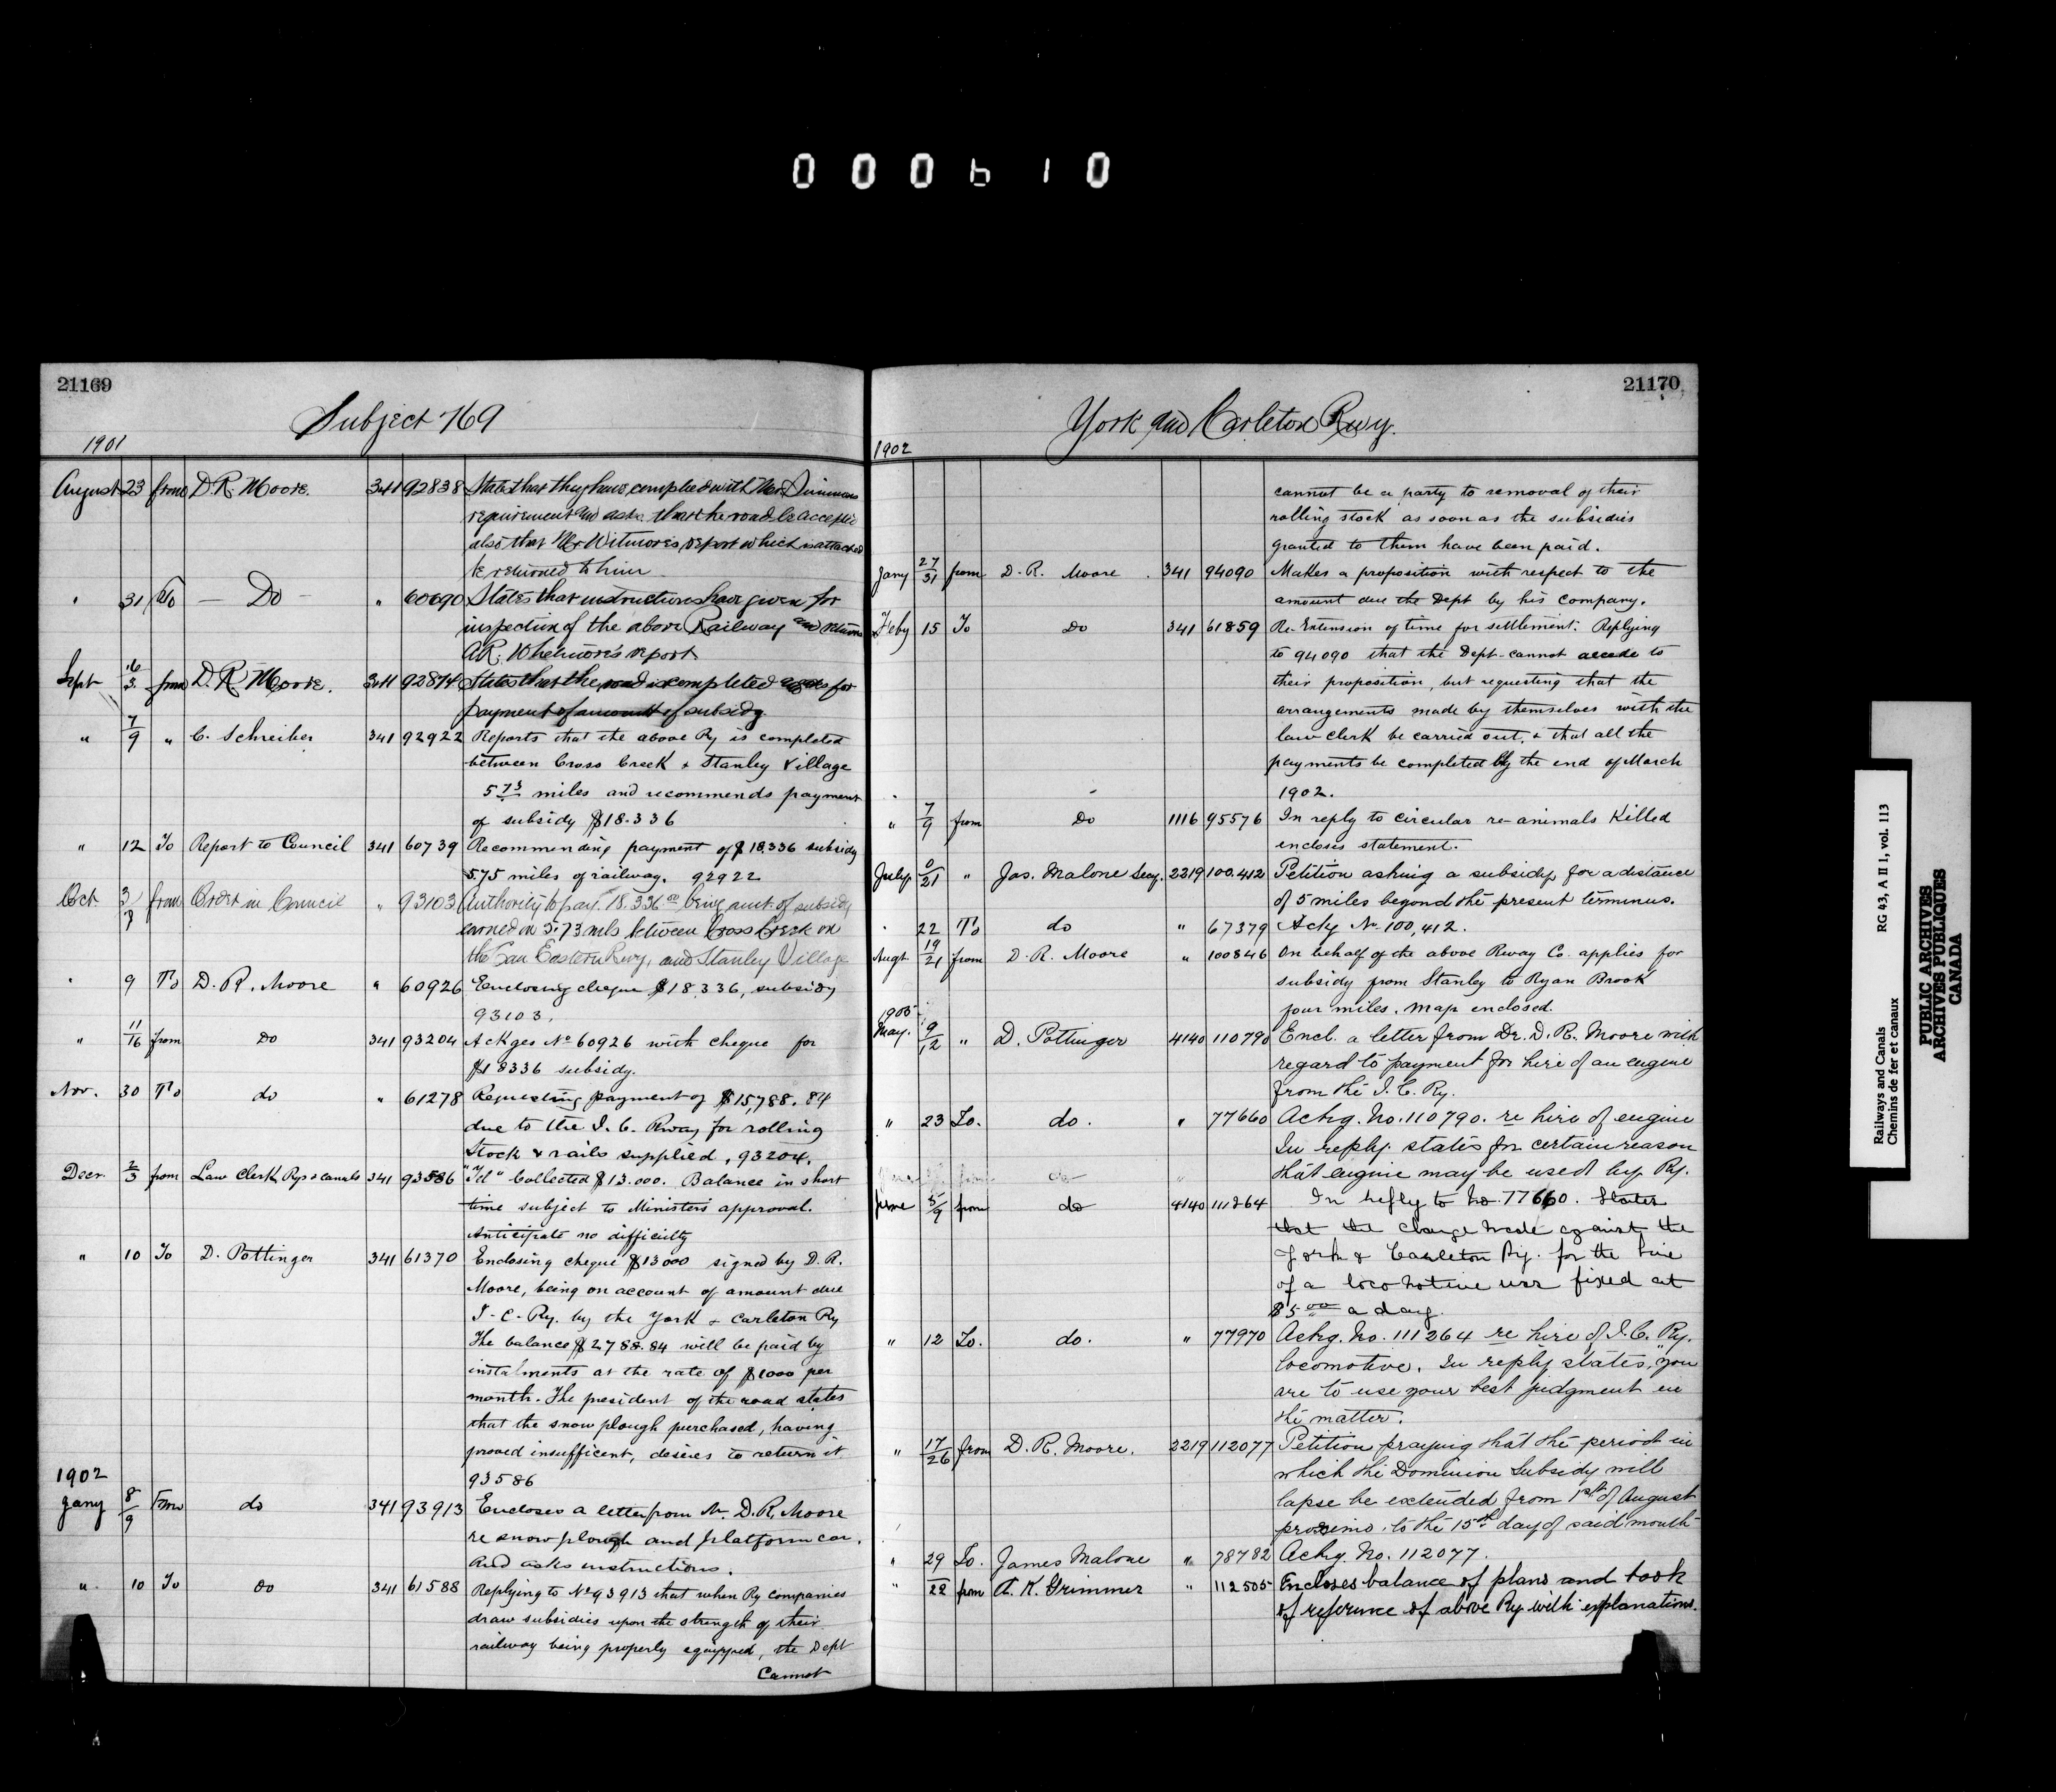 000610
21169
Subject 769
1901
August 23 from D. R. Moore. 341 92838 States that they have complied with Mr
requirement and asks that the road be accepted
also that Mr Witmore's report which is attached
be returned to him
" 31 To — Do — " 60690 States that instructions have given for
inspection of the above Railway and returns
A.R. Whetmore's report
Sept 3 from D. R. Moore. 341 92874 States that the road is completed asks for
payment of amount of subsidy
" 7/9 " C. Schreiber 341 92922 Reports that the above Ry is completed
between Cross Creek & Stanley Village
5 73 miles and recommends payment
of subsidy $18.336
" 12 To Report to Council 341 60739 Recommending payment of $18.336 subsidy
575 miles of railway. 92922
Oct. from Order in Council " 93103 Authority to pay. 18.336 00 being amt. of subsidy
earned on 5.73 mls between Cross Creek on
the Can Eastern Rwy, and Stanley Village
" 9 To D. R. Moore " 60926 Enclosing cheque $18.336, subsidy
93103.
" 11/16 from do 341 93204 Ackges No 60926 with cheque for
$18336 subsidy.
Nov. 30 To do " 61278 Requesting payment of $15,788.84
due to the I. C. Rway for rolling
Stock & rails supplied, 93204.
Decr. 2/3 from Law Clerk Rys & canals 341 93586 Collected $13.000. Balance in short
time subject to Ministers approval.
Anticipate no difficulty
" 10 To D. Pottinger 341 61370 Enclosing cheque $13000 signed by D. R.
Moore, being on account of amount due
I-C-Ry. by the York & Carleton Ry
The balance $2788.84 will be paid by
instalments at the rate of $1000 per
month. The president of the road states
that the snow plough purchased, having
proved insufficent, desires to return it.
93586
1902
Jany 8/9 From do 341 93913 Encloses a letter from Mr. D. R. Moore
re snow plough and platform car.
And asks instructions.
" 10 To Do 341 61588 Replying to No 93913 that when Ry companies
draw subsidies upon the strength of their
railway being properly equipped, the Dept
Cannot
21170
York and Carleton Rwy.
1902
cannot be a party to removal of their
rolling stock as soon as the subsidies
granted to them have been paid.
Jany 27/31 from D. R. Moore. 341 94090 Makes a proposition with respect to the
amount due the Dept by his company.
Feby 15 To Do 341 61859 Re-Extension of time for settlement. Replying
to 94090 that the Dept-cannot accede to
their proposition, but requesting that the
arrangements made by themselves with the
law clerk be carried out, & that all the
payments be completed by the end of March
1902.
" 7/9 from Do 1116 95576 In reply to circular re-animals Killed
encloses statement.
July /21 " Jas. Malone Secy. 2219 100.412 Petition asking a subsidy for a distance
of 5 miles beyond the present terminus.
" 22 To do " 67379 Ackg No. 100,412.
Augt 19/21 from D. R. Moore " 100846 On behalf of the above Rway Co. applies for
subsidy from Stanley to Ryan Brook
four miles. Map enclosed.
1903
May. 9/12 " D. Pottinger 4140 110790 Encl. a letter from Dr. D. R. Moore with
regard to payment for hire of an engine
from the I. C. Ry.
" 23 To. do. " 77660 Ackg. No. 110790. re hire of engine
In reply. states for certain reason
that engine may be used by Ry.
June 5/9 from do 4140 111264 In reply to No 77660. States
that the charge made against the
York & Carleton Ry. for the hire
of a locomotive was fixed at
$5 00 a day.
" 12 To. do. " 77970 Ackg. No. 111264 re hire of I. C. Ry.
locomotive. In reply states, "you
are to use your best judgment in
the matter."
" 17/26 from D. R. Moore. 2219 112077 Petition praying that the period in
which the Dominion Subsidy will
lapse be extended from 1st of August
proximo. to the 15th day of said month
" 29 To. James Malone " 78782 Ackg. No. 112077.
" 22 from A. K. Grimmer " 112505 Encloses balance of plans and book
of reference of above Ry with explanations.
Railways and Canals RG 43, A II 1, vol. 113
Chemins de fer et canaux
PUBLIC ARCHIVES
ARCHIVES PUBLIQUES
CANADA